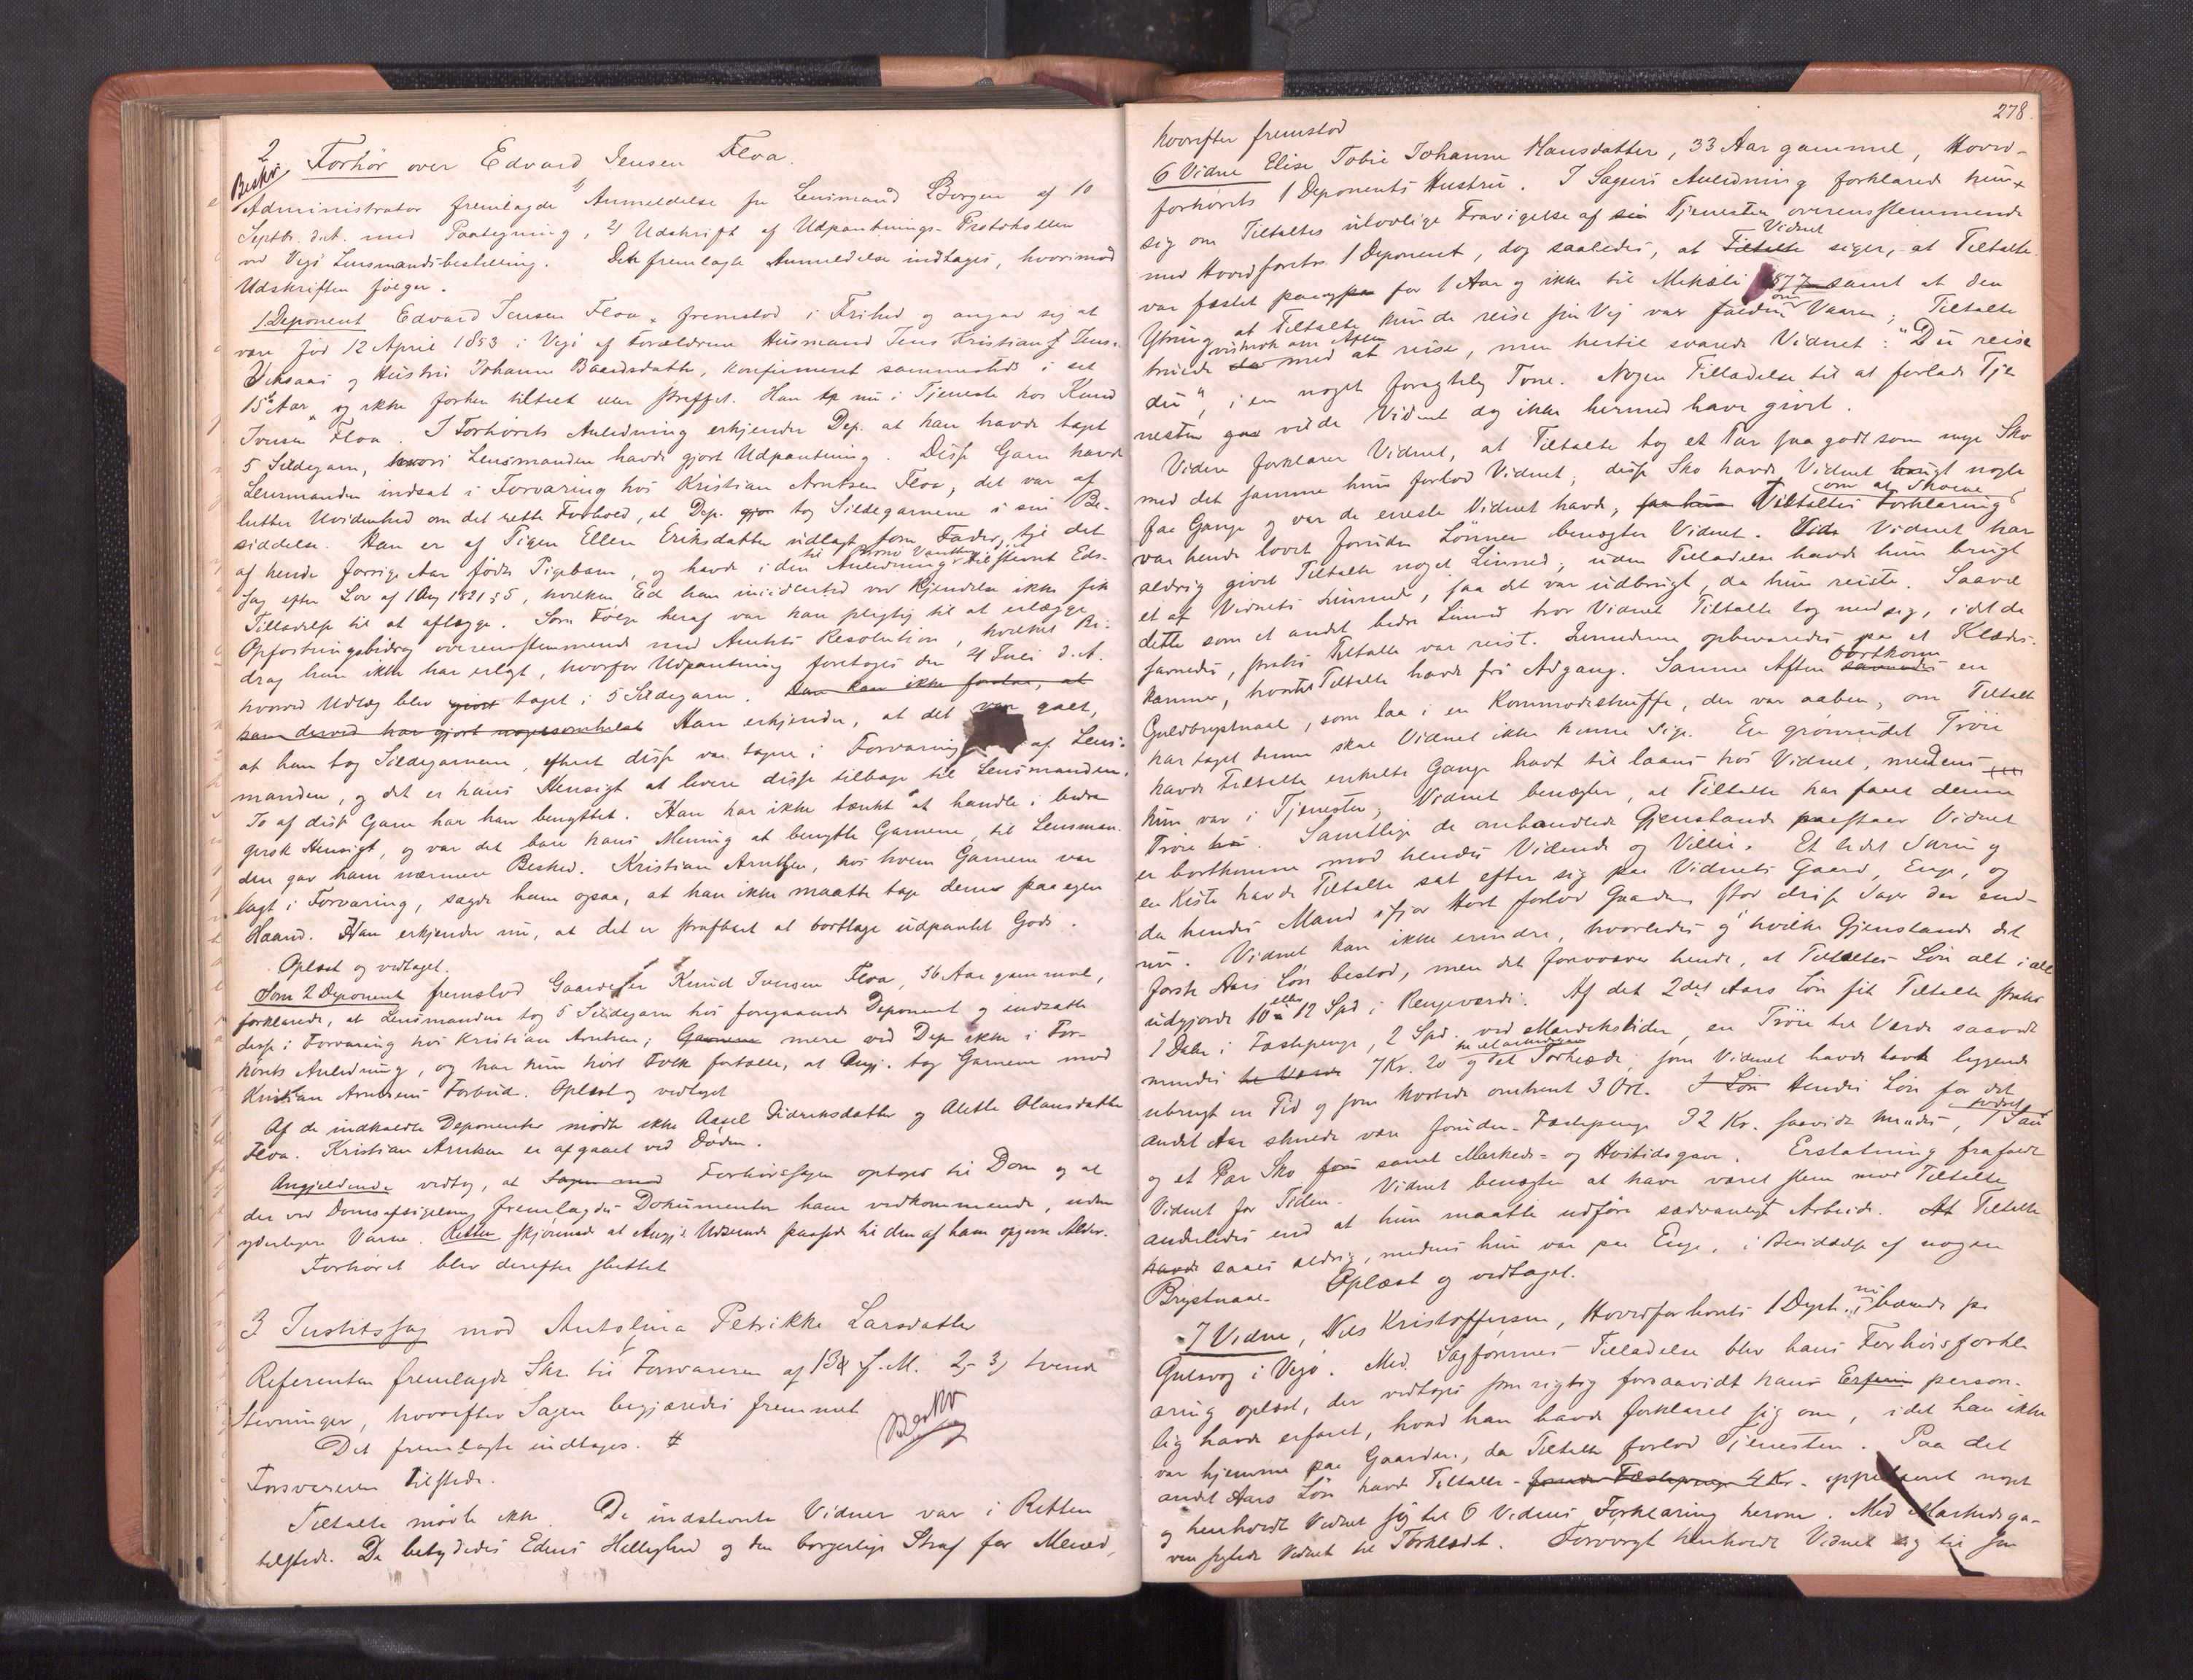 2 Forhör over Edvard Jensen Floa.
Beskr.
Administrator fremlagde 1) Anmeldelse fra Lensmand Borgen af 10
Septbr. d.A. med Paategning, 2) Udskrift af Udpantnings-Protokollen
ved Vegö Lensmandsbestilling. Det fremlagte Anmeldelse indtages, hvorimod
Udskriften fölger.
1 Deponent Edvard Jensen Floa, fremstod i Frihed og angav sig at
være född 12 April 1853 i Vegö af Forældrene Husmand Jens Kristian Jens-
og Hustru Johanna Baardsdatter, konfirmeret sammesteds i sit
15de Aar, og ikke forhen tiltalt eller straffet. Han er nu i Tjeneste hos Knud
Iversen Floa. I Forhörets Anledning erkjender Dep. at han havde taget
5 Sildegarn, hvori Lensmanden havde gjort Udpantning. Disse Garn havde
Lensmanden indsat i Forvaring hos Kristian Arntsen Floa; det var af
lutter Uvidenhed om det rette Forhold, at Dep. gjor tog Sildegarnene i sin Be-
siddelse. Han er af Pigen Ellen Eriksdatter udlagt som Fader til det
af hende forrige Aar födte Pigebarn, og havde i den Anledning til
Sag efter Lov af 1 Aug 1821 § 5, hvilken Ed han ved Kjendelse ikke fik
Tilladelse til at aflægge. Som Fölge heraf var han pligtig til at erlægge
Opfostringsbidrag overensstemmende med Amtets Resolution, hvilket Bi-
drag han ikke har erlagt, hvorfor Udpantning foretoges den 4 Juli d.A.
hvorved Udlæg blev gjort taget i 5 Sildegarn. Han kan ikke forstaa, at
han derved har gjort nogetsomhelst Han erkjender, at det var galt,
at han tog Sildegarnene, efterat disse var tagne i Forvaring af Lens-
manden, og det er hans Hensigt at levere disse tilbage til Lensmanden.
To af disse Garn har han benyttet. Han har ikke tænkt at handle i bedra
gersk Hensigt, og var det bare hans Mening at benytte Garnene, til Lensman-
den gav ham nærmere Besked. Kristian Arntsen, hos hvem Garnene var
lagt i Forvaring, sagde ham ogsaa, at han ikke maatte tage dem paa egen
Haand. Han erkjender nu, at det er strafbart at borttage udpantet Gods.
Oplæst og vedtaget.
Som 2 Deponent fremstod Gaardeier Knud Iversen Floa, 56 Aar gammel,
forklarede, at Lensmanden tog 5 Sildegarn hos foregaaende Deponent og indsatte
disse i Forvaring hos Kristian Arntsen; Garnene mere ved Dep. ikke i For-
hörets Anledning, og har kun hört Folk fortælle, at Angj. tog Garnene mod
Kristian Arntsens Forbud. Oplæst og vedtaget
Af de indkaldte Deponenter mödte ikke Axsel Didriksdatter og Alette Olausdatter
Floa. Kristian Arntsen er afgaaet ved Döden.
Angjeldende vedtog, at Sagen med Forhörssagen optoges til Dom og at
der ved Domsafsigelsen fremlagdes Dokumenter ham vedkommende, uden
yderligere Varsel. Retten skjönnede at Angjs Udseende passede til den af ham opgivne Alder.
Forhöret blev derefter sluttet
3 Justitssag mod Antolina Petrikke Larsdatter
Referenten fremlagde Skr. til Forsvareren af 13 f.M. 2-3) tvende
Stevninger, hvorefter Sagen begjæredes fremmet
Beskr.
Det fremlagte indtages. #
Forsvareren tilstede.
Tiltalte mödte ikke. De indstevnte Vidner var i Retten
tilstede. De betydedes Edens Hellighed og den borgerlige Straf for Meened,
278.
hvorefter fremstod
6 Vidne Elise Tobie Johanne Hansdatter, 33 Aar gammel, Hoved-
forhörets 1 Deponents Hustru. I Sagens Anledning forklarede hun
sig om Tiltaltes ulovlige Fravigelse af sin Tjeneste, overensstemmende
med Hovedforhörets 1 Deponent, dog saaledes, at Tiltalte Vidnet siger, at Tiltalte
var fæstet paa for 1 Aar og ikke til Mikæli 1877 samt at den
Ytring at Tiltalte kunde reise sin Vej var faldt om Vaaren; Tiltalte
truede da med at reise, men hertil svarede Vidnet: "Du reise
du", i en noget foragtelig Tone. Nogen Tilladelse til at forlade Tje
nesten vilde Vidnet dog ikke hermed have givet.
Videre forklarer Vidnet, at Tiltalte tog et Par saa godt som nye Sko
med det samme hun forlod Vidnet; disse Sko havde Vidnet brugt nogle
faa Gange og var de eneste Vidnet havde; Tiltaltes Forklaring om at Skoene
var hende lovet foruden Lönnen benægter Vidnet. Vidnet har
aldrig givet Tiltalte noget Linned; uden Tilladelse havde hun brugt
et af Vidnets Linned, saa det var udbrugt, da hun reiste. Saavel
dette som et andet bedre Linned hvor Vidnet Tiltalte tog med sig, idet de
savnedes, straks Tiltalte var reist. Linnedene opbevaredes paa et Klæde-
kammer, hvortil Tiltalte havde fri Adgang. Samme Aften savnedes bortkom en
Guldbrystnaal, som laa i en Kommodeskuffe, der var aaben, om Tiltalte
har taget denne skal Vidnet ikke kunne sige. En grönrudet Tröie
havde Tiltalte enkelte Gange havt til laans hos Vidnet, medens
hun var i Tjeneste; Vidnet benægter, at Tiltalte har faaet denne
Tröie. Samtlige de omhandlede Gjenstande paastaar Vidnet
er bortkomne mod hendes Vidende og Villie. Et lidet og
en Kiste havde Tiltalte sat efter sig paa Vidnets Gaard, Enge, og
da hendes Mand ifjor Höst forlod Gaarden stod disse Sager der end-
nu. Vidnet kan ikke erindre, hvorledes og hvilke Gjenstande det
förste Aars Lön bestod, men det forvover hende, at Tiltaltes Lön alt i alt
udgjorde 10 eller 12 Spd i Pengeværdi. Af det 2det Aars Lön fik Tiltalte straks
1 Daler i Fæstepenge, 2 Spd. ved Markedstiden, en Tröie til Værdi saavidt
mindes 7 Kr. 20 og et Forklæde, som Vidnet havde havt liggende
ubrugt en Tid og som kostede omtrent 3 Ort. I Lön Hendes Lön for det
andet Aar skulde være foruden Fæstepenge 32 Kr. saavidt mindes, 1 Sau
og et Par Sko samt Markeds- og Höitidsgave. Erstatning frafalder
Vidnet for Tiden. Vidnet benægter at have været slem mod Tiltalte
anderledes end at hun maatte udföre sædvanligt Arbeide. At Tiltalte
havde saaes aldrig, medens hun var paa Enge, i Besiddelse af nogen
Brystnaal. Oplæst og vedtaget.
7 Vidne, Nils Kristoffersen, Hovedforhörets 1 Dept., nu boende paa
Gulsvog i Vegö. Med Sagförernes Tilladelse blev hans Forhörsforkla
aring oplæst, der vedtoges som rigtig forsaavidt hans person-
lig havde erfaret, hvad han havde forklaret sig om, idet han ikke
var hjemme paa Gaarden, da Tiltalte forlod Tjenesten. Paa det
andet Aars Lön havde Tiltalte foruden Fæstepenge 4 Kr. oppebaaret noget
og henholdt Vidnet sig til 6 Vidnes Forklaring herom. Med Markedsga-
ven sigtede Vidnet til Forklædet. Forövrigt henholdt Vidnet sig til sin